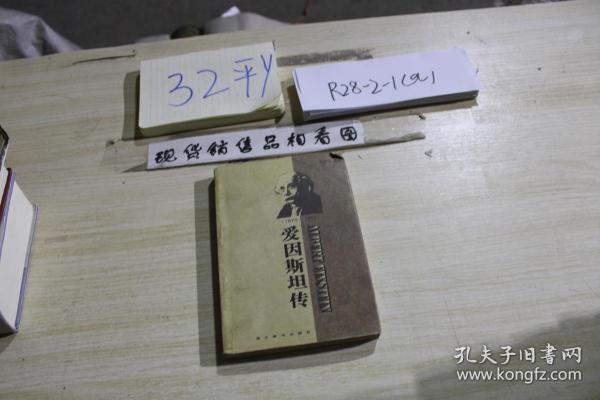 32平Y
R28-2-1(a)
现货销售品相看图
爱因斯坦传
ALBERT EINSTEIN
孔夫子旧书网
www.kongfz.com